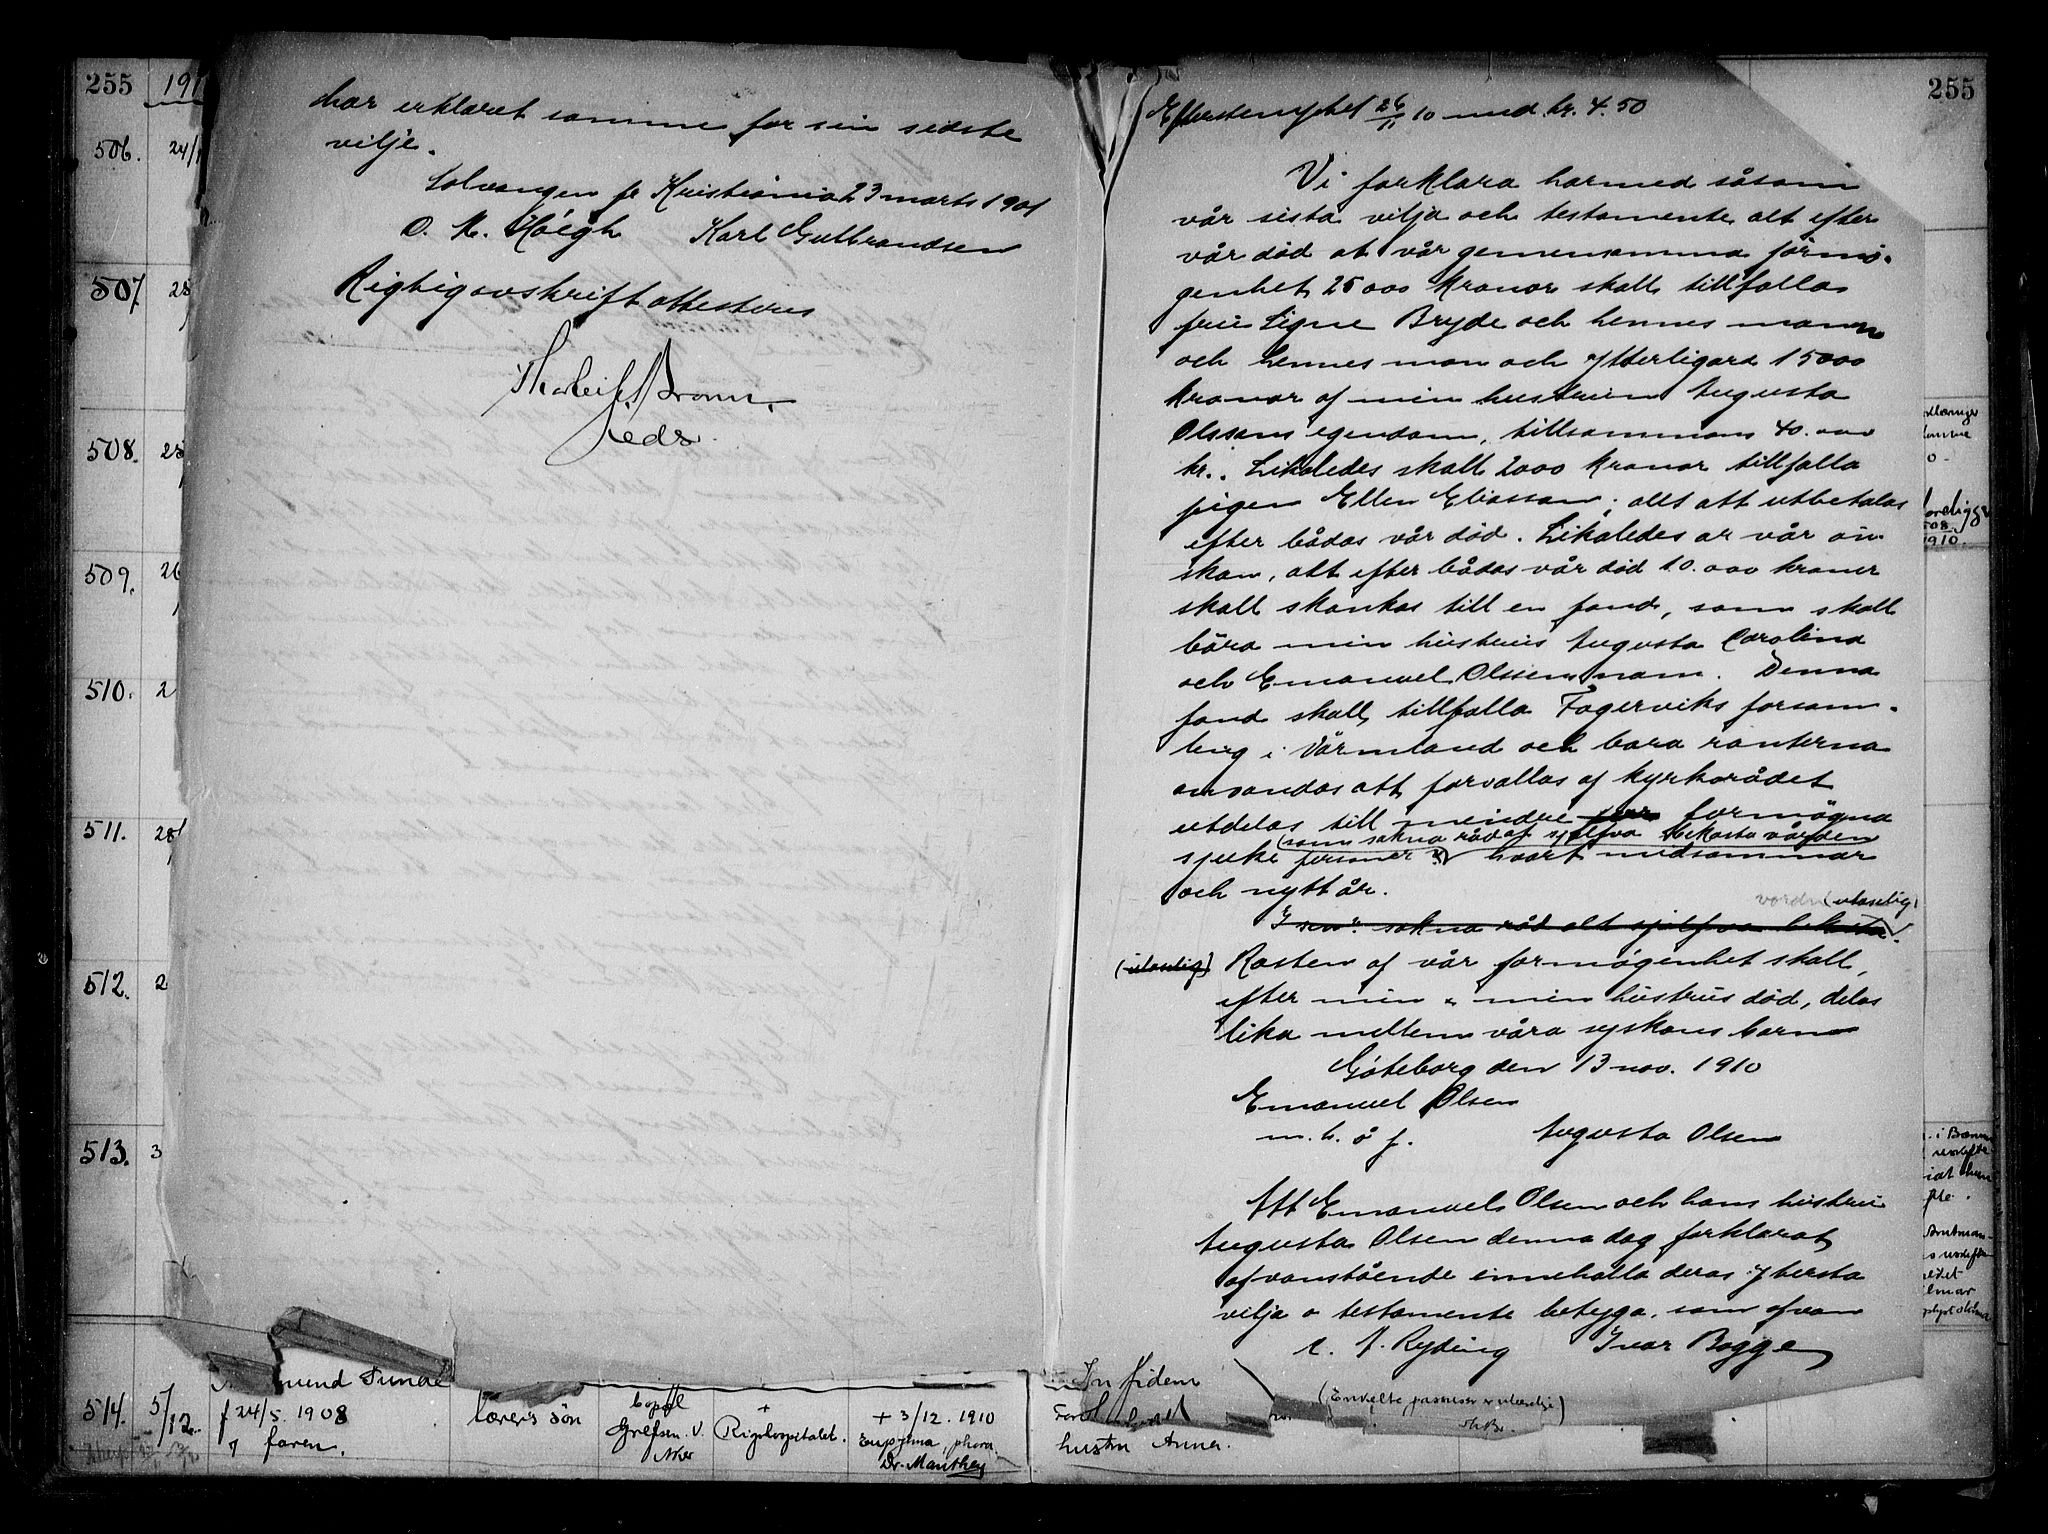 255
191
506. 24/1
507. 28
508. 25
509. 26
510. 2
511. 28/
512. 2
513. 3
har erklæret samme for sin sidste
vilje.
Solvangen pr Kristiania 23 marts 1901
O. M. Høegh Karl Gulbrandsen
Rigtig avskrift attesteres
514. 5/12
mund
f 24/5. 1908
faren.
lærers søn
Grefsen. V.
Aker
+
Rigshospitalet.
+ 3/12. 1910
Dr. Manthey
255
Efterstemplet 26/11 10 med kr. 4.50
Vi forklara harmed såsom
vår sista vilja och testamente att efter
vår död at vår gemensamma förmö-
genhet 25 000 kronor skall tillfalla
fru Signe Bryde och hennes mann
och hennes man och ytterligare 15 000
kronor af min hustrun Augusta
Olssons egendom, tillsammans 40.000
kr. Likaledes skall 2000 kronor tillfalla
pigen Ellen Eliasson, allt att utbetalas
efter bådas vår död. Likaledes ar vår ön-
skan, att efter bådas vår död 10.000 kroner
skall skankas till en fond, som skall
bära min hustrus Augusta Carolina
och Emanuel Olssens nam. Denna
fond skall tillfalla Fagerviks forsam-
ling i Värmland och bara ranterna
anvandas att forvaltas af kyrkorådet
utdelas till mindre formögna
(som sakna råd af sjelfva bekosta vården
sjuke personer hvart midsommar
och nytt år.
vorden (utaelig)
sakna råd att sjelfva bekosta
Rasten af vår formögenhet skall,
efter min & min hustrus död, delas
lika mellem våra syskons barn
Göteborg den 13 nov. 1910
Emanuel Olsen
m. h. å p. Augusta Olsen
Att Emanuel Olsen och hans hustru
Augusta Olsen denna dag forklarat
ofvanstående innehalla deras ytersta
vilja o testamente betyga. som ofvan
Ryding Ivar Bagge
In fidem
hustru Anna.
(Enkelte passuser er ulæselige)
508.
1910.
i Bærum